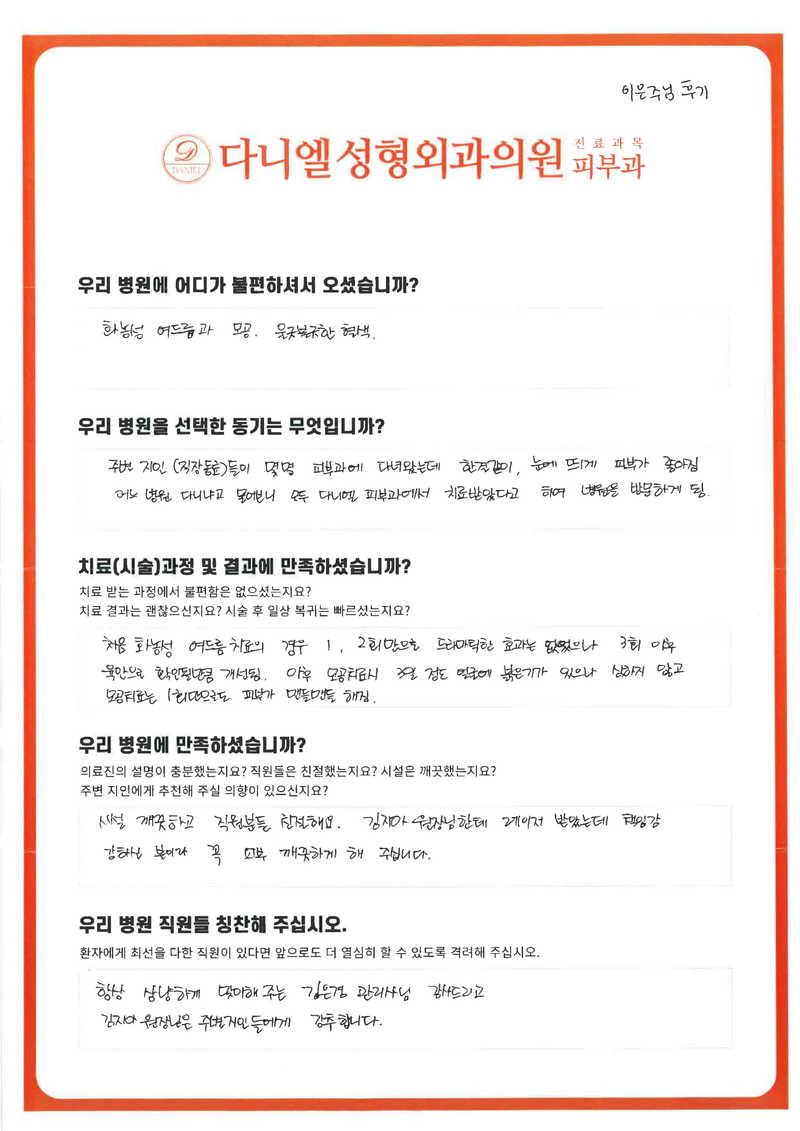 이은주님 후기
DANIEL
다니엘성형외과의원 진료과목 피부과
우리 병원에 어디가 불편하셔서 오셨습니까?
화농성 여드름과 모공. 울긋불긋한 형색.
우리 병원을 선택한 동기는 무엇입니까?
주변 지인 (직장동료)들이 몇명 피부과에 다녀왔는데 한결같이, 눈에 띄게 피부가 좋아짐
어느 병원 다니냐고 물어보니 모두 다니엘 피부과에서 치료받았다고 하여 병원을 방문하게 됨.
치료(시술)과정 및 결과에 만족하셨습니까?
치료 받는 과정에서 불편함은 없으셨는지요?
치료 결과는 괜찮으신지요? 시술 후 일상 복귀는 빠르셨는지요?
처음 화농성 여드름 치료의 경우 1, 2회만으로 드라마틱한 효과는 없었으나 3회 이후
육안으로 확인될만큼 개선됨. 이후 모공치료시 3일 정도 얼굴에 붉은기가 있으나 심하지 않고
모공치료는 1회만으로도 피부가 맨들맨들 해짐.
우리 병원에 만족하셨습니까?
의료진의 설명이 충분했는지요? 직원들은 친절했는지요? 시설은 깨끗했는지요?
주변 지인에게 추천해 주실 의향이 있으신지요?
시설 깨끗하고 직원분들 친절해요. 김지아 원장님한테 레이저 받았는데 책임감
강하신 분이라 꼭 피부 깨끗하게 해 주십니다.
우리 병원 직원들 칭찬해 주십시오.
환자에게 최선을 다한 직원이 있다면 앞으로도 더 열심히 할 수 있도록 격려해 주십시오.
항상 상냥하게 맞이해 주는 김은경 관리사님 감사드리고
김지아 원장님은 주변지인들에게 강추합니다.